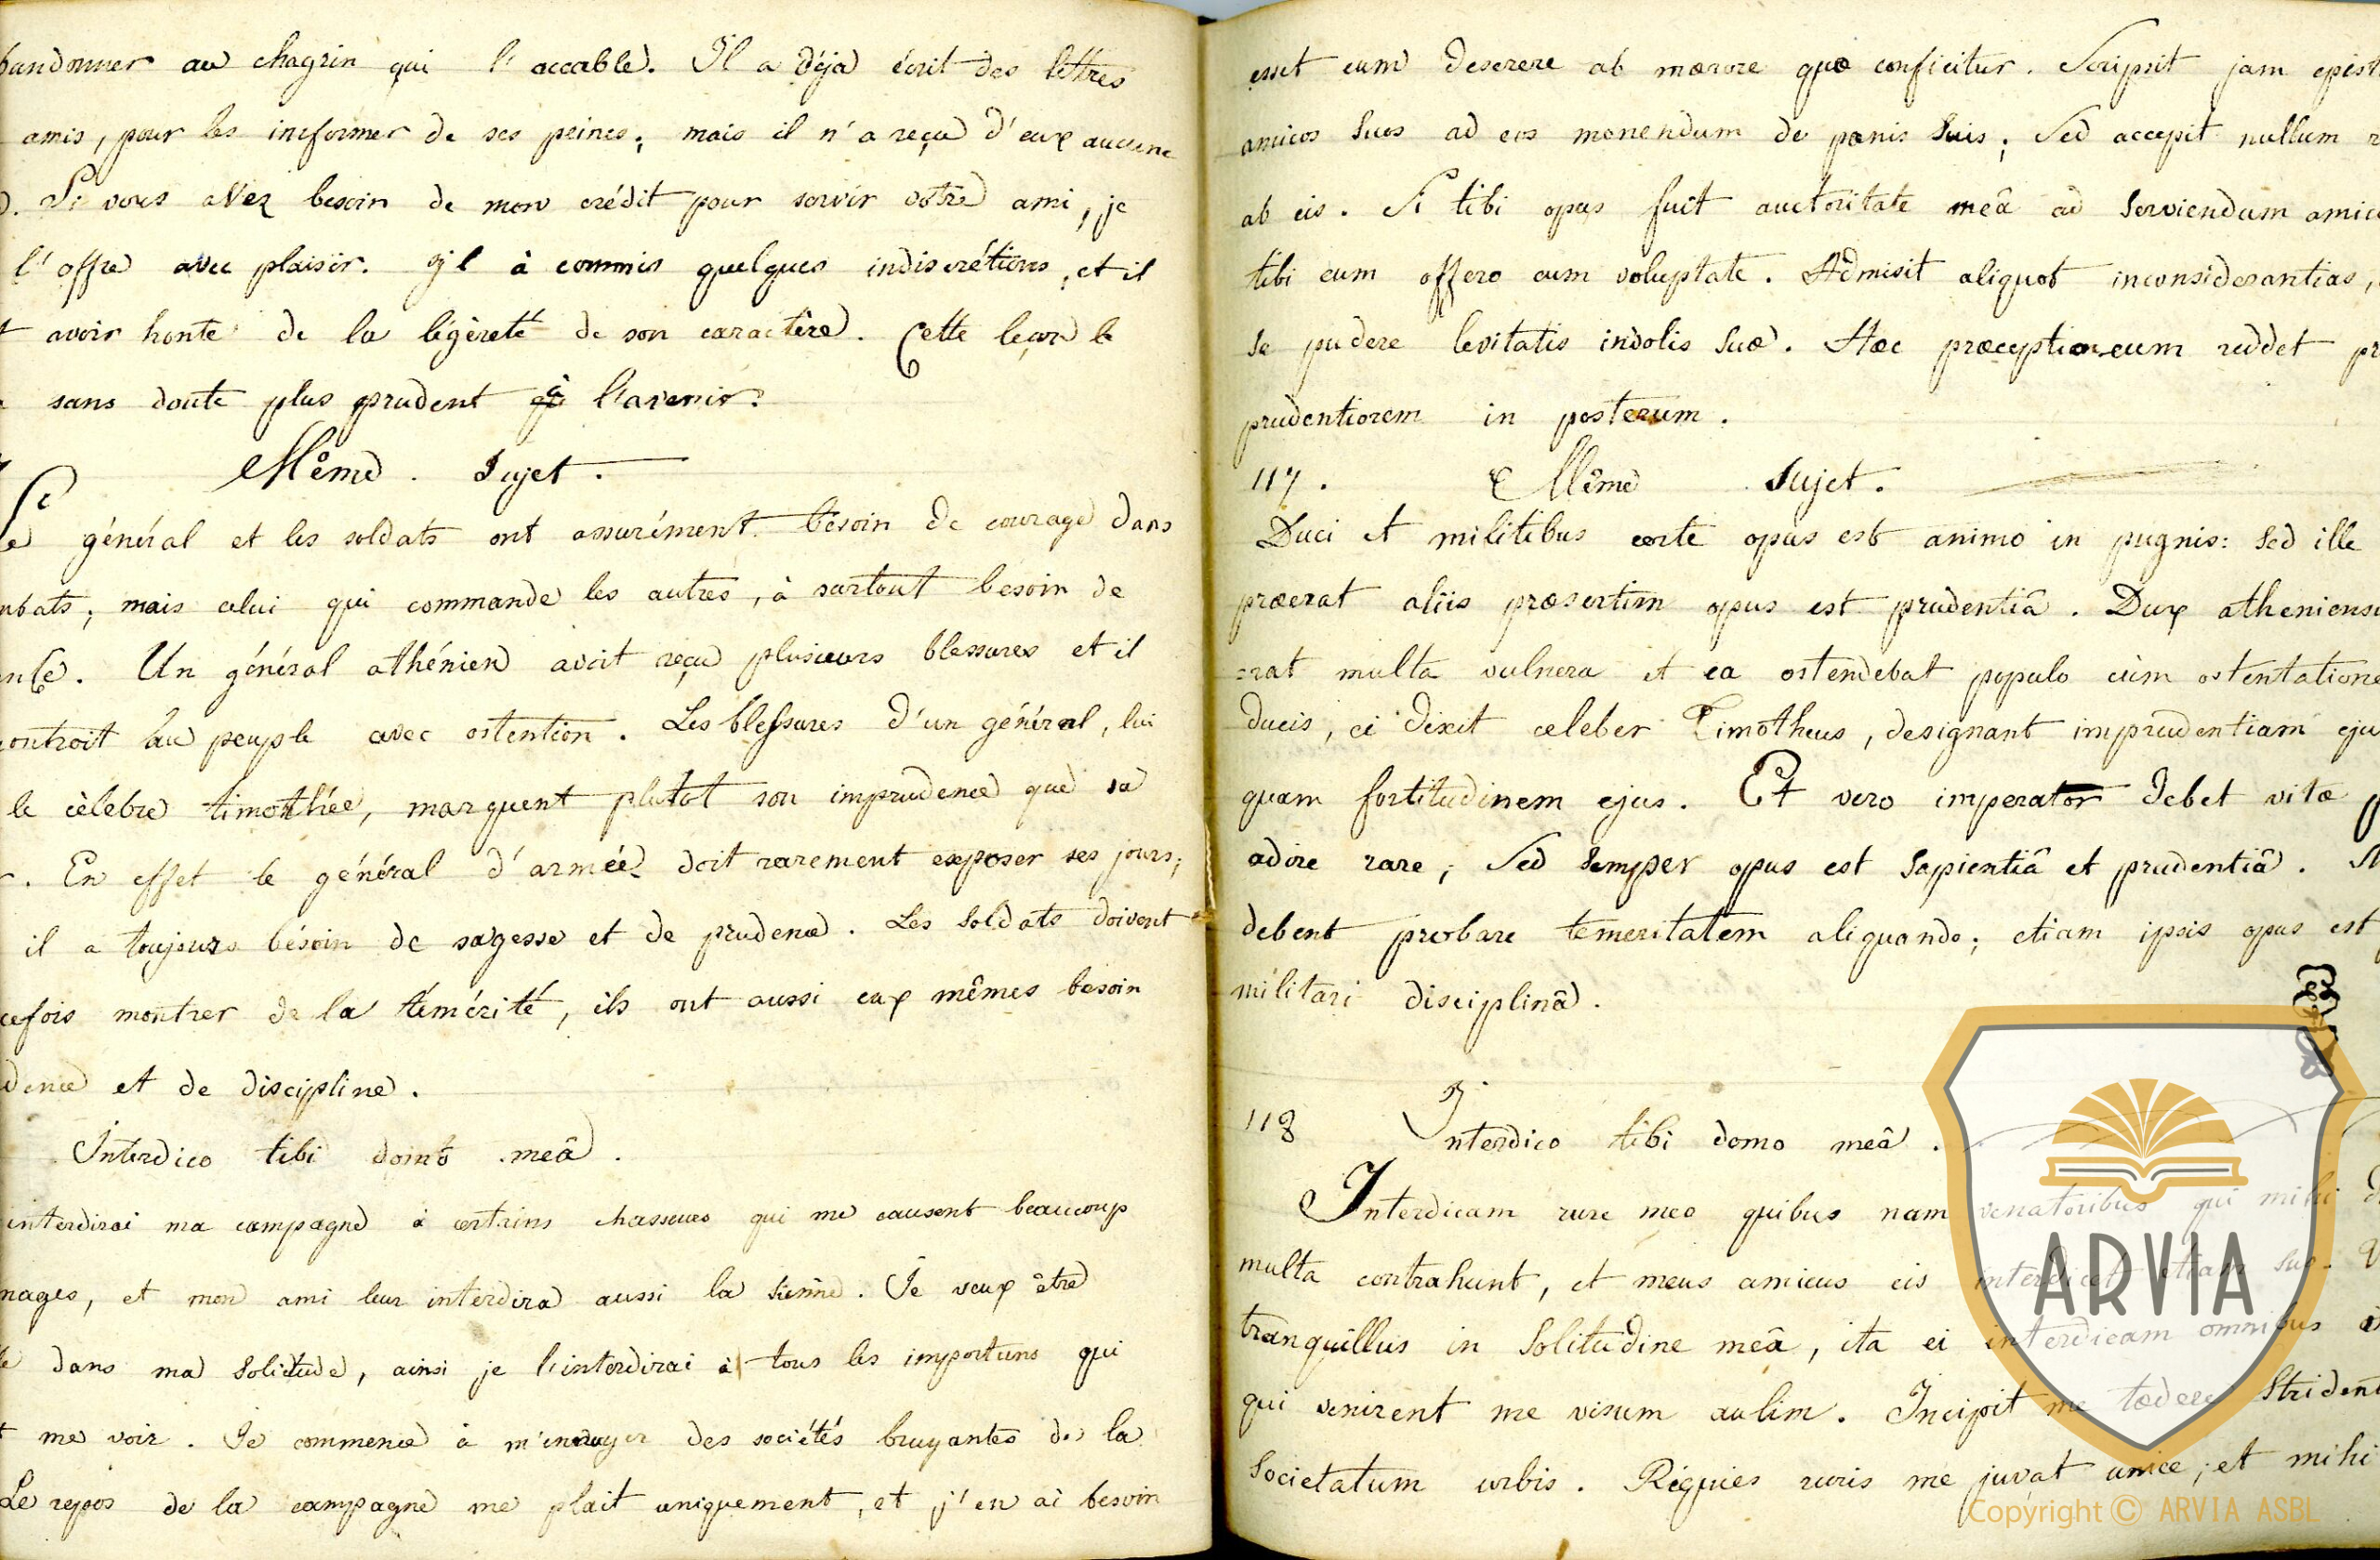 bandonner au chagrin qui l'accable. Il a déja écrit des lettres
amis, pour les informer de ses peines; mais il n'a reçu d'eux aucune
Si vous avez besoin de mon crédit pour servir votre ami, je
l'offre avec plaisir. Il à commis quelques indiscrétions, et il
avoir honte de la légèreté de son caractère. Cette leçon le
sans doute plus prudent à l'avenir.
Même Sujet.
Le général et les soldats ont assurément besoin de courage dans
mbats; mais celui qui commande les autres, à surtout besoin de
Un général athénien avoit reçu plusieurs blessures et il
ontroit au peuple avec ostention. Les blessures d'un général, lui
le célebre timothée, marquent plutot son imprudence que sa
En effet le général d'armée doit rarement exposer ses jours;
il a toujours bésoin de sagesse et de prudence. Les Soldats doivent
cefois montrer de la témérité, ils ont aussi eux mêmes besoin
dence et de discipline.
Interdico tibi domo meâ.
interdirai ma campagne à certains chasseurs qui me causent beaucoup
mages, et mon ami leur interdira aussi la sienne. Je veux être
dans ma solitude, ainsi je l'interdirai à tous les importuns qui
t me voir. Je commence à m'ennuyer des sociétés bruyantes de la
Le repos de la campagne me plait uniquement, et j'en ai besoin
esset eum deserere ab mœrore quo conficitur. Scripsit jam epist
amicos suos ad eos monendum de pœnis suis; sed accepit nullum r
ab eis. Si tibi opus fuit auctoritate meâ ad serviendum amic
tibi eum offero cum voluptate. Admisit aliquot inconsiderantias,
se pudere levitatis indolis suæ. Hæc præceptio eum reddet pr
prudentiorem in posterum.
117. Même Sujet.
Duci et militibus certe opus est animo in pugnis: sed ille
præerat aliis præsertim opus est prudentiâ. Dux atheniensi
erat multa vulnera et ea ostendebat populo cùm ostentatione
ducis, ei dixit celeber Timotheus, designant imprudentiam eju
quam fortitudinem ejus. Et vero imperator debet vitæ p
adire rare; sed semper opus est sapientiâ et prudentiâ.
debent probare temeritatem aliquando; etiam ipsis opus est
militari disciplinâ.
118 Interdico tibi domo meâ.
Interdicam rure meo quibus nam venatoribus qui mihi d
multa contrahunt, et meus amicus eis interdicet etiam suo. V
tranquillus in solitudine meâ, ita ei interdicam omnibus
qui venirent me visum aulim. Incipit me tædere strident
Societatum urbis. Requies ruris me juvat unice; et mihi
ARVIA
Copyright © ARVIA ASBL